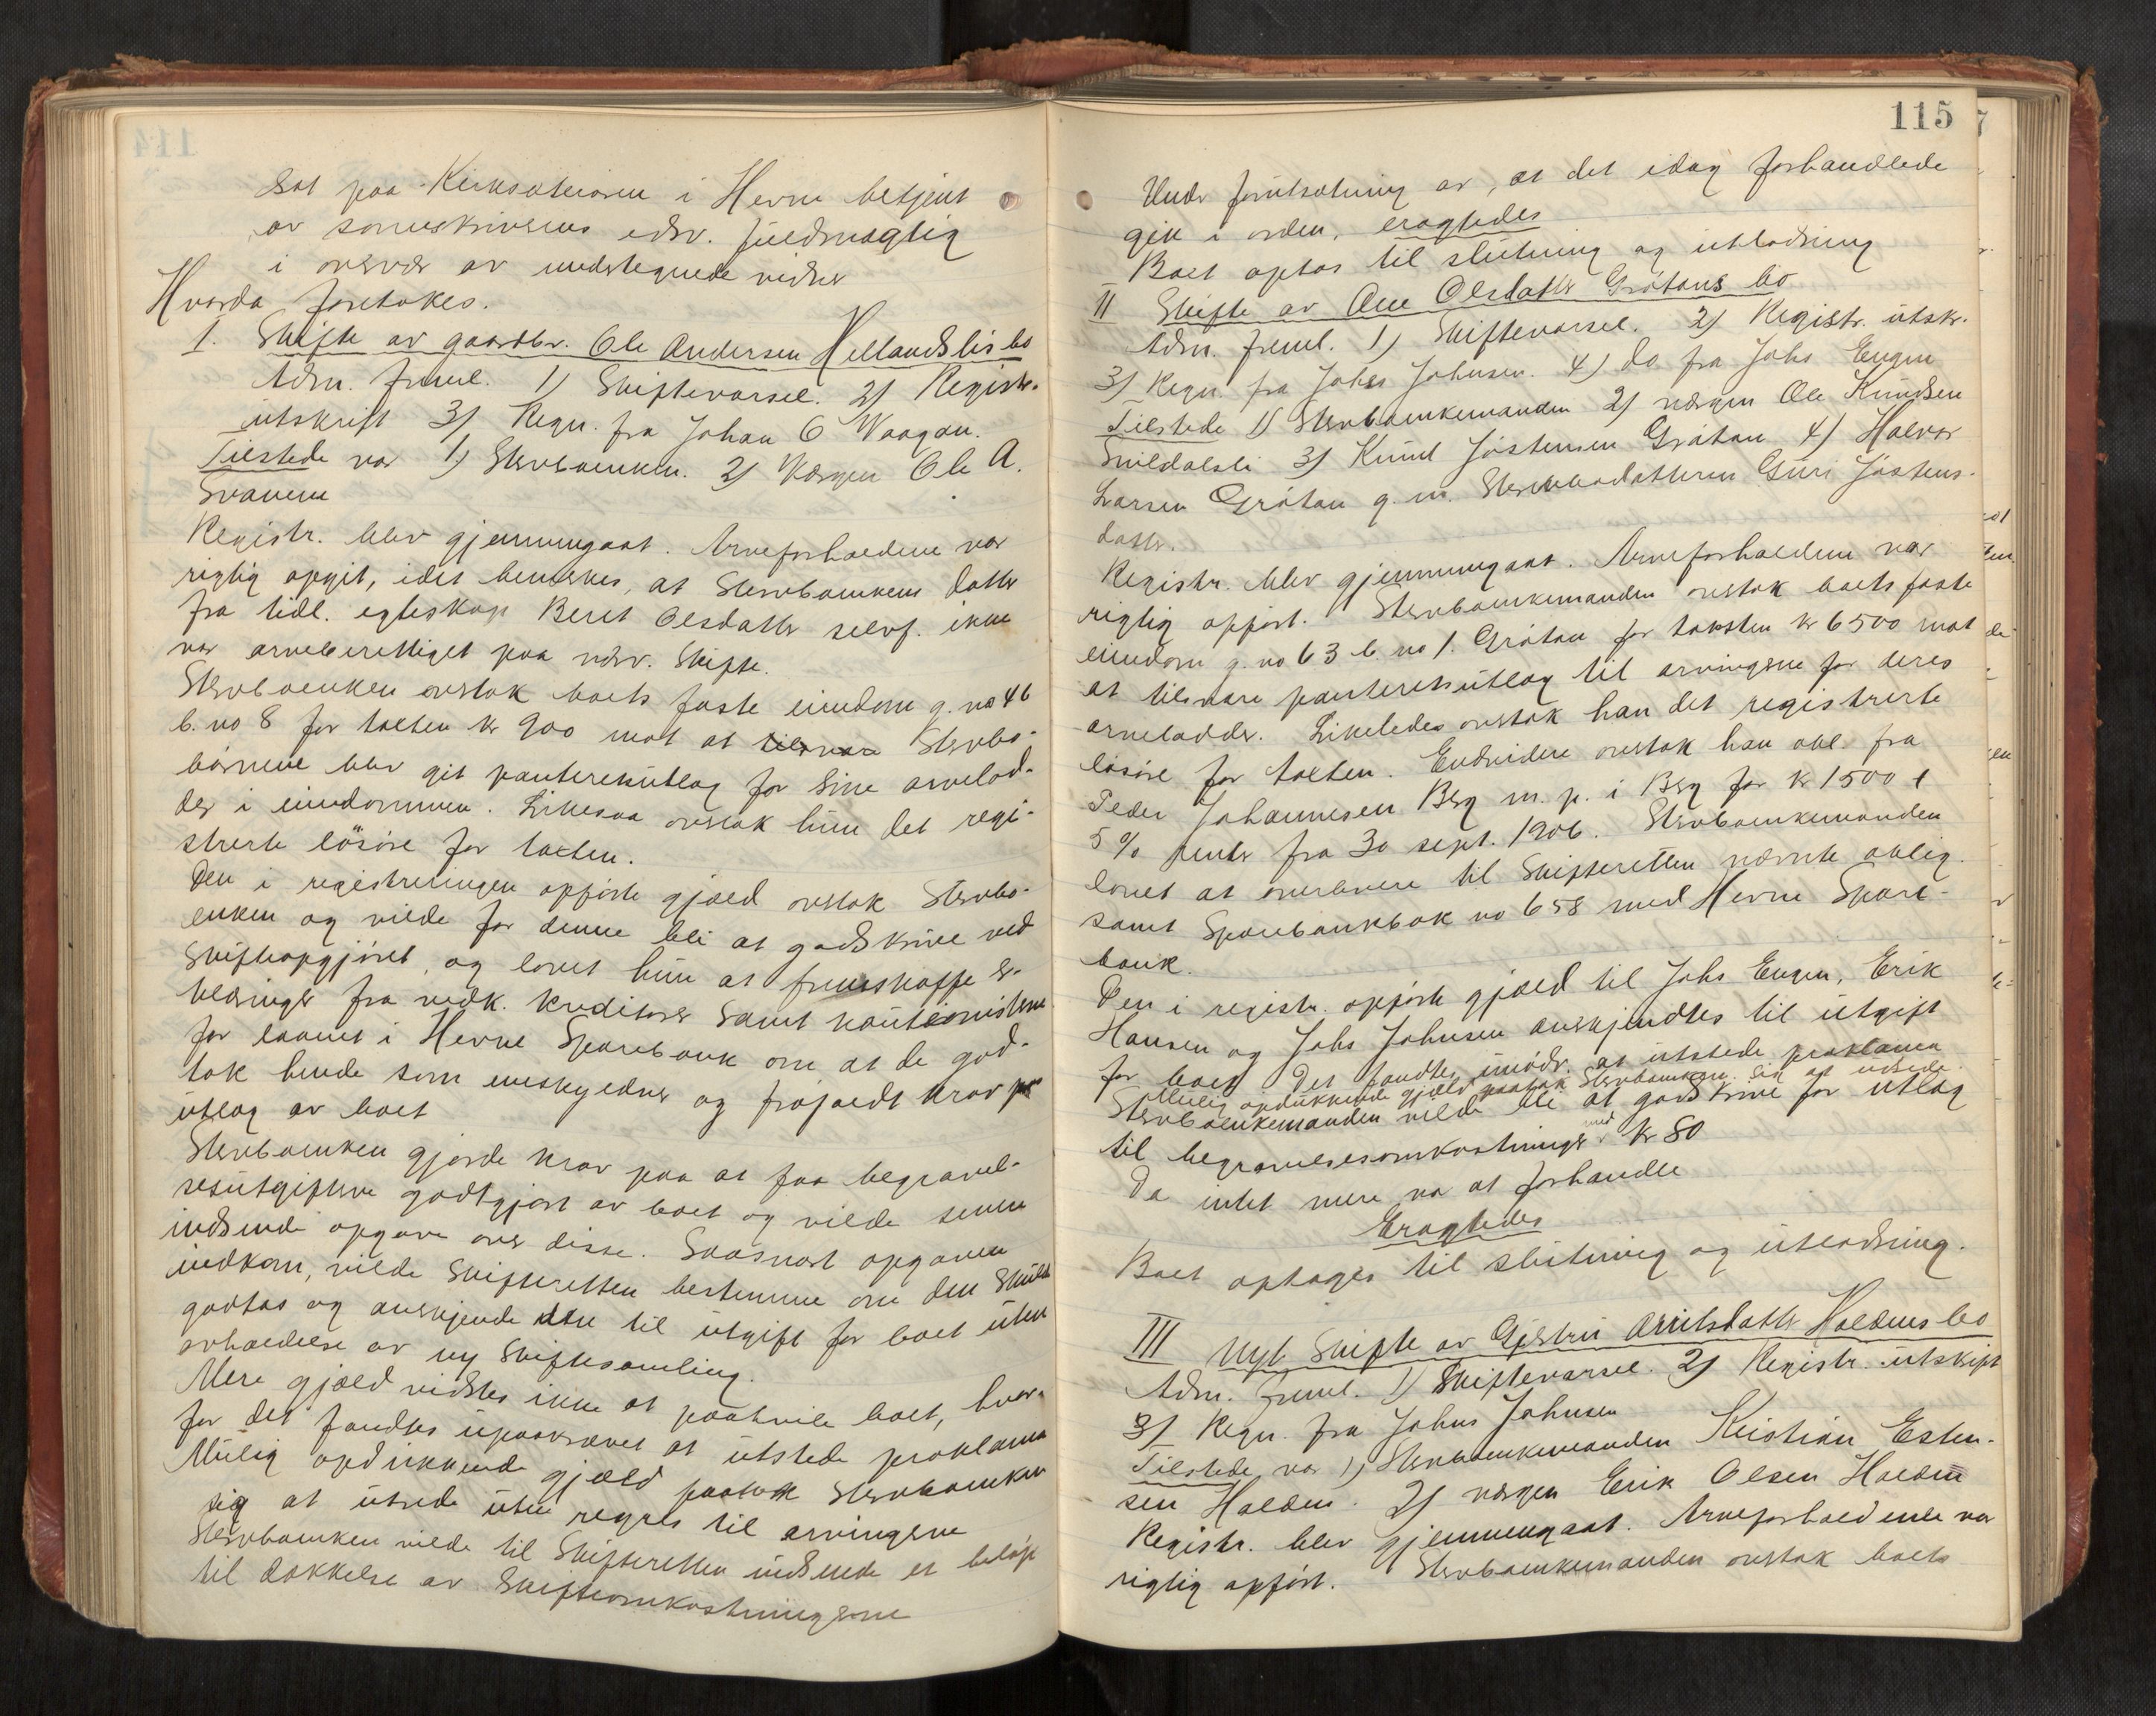 sat paa Kirksæterøren i Hevne betjent
av sorenskriverens edsv. fuldmægtig
i overvær av undertegnede vidner
Hvorda foretokes.
I. Skifte av gaardbr. Ole Andersen Hellandslis bo
Adm. freml. 1) Skiftevarsel. 2) Registr.
utskrift 3) Regn. fra Johan O Vaagan.
Tilstede var 1) Stervboenken. 2) Værgen Ole A.
Svanem
Registr. blev gjennemgaat. Arveforholdene var
rigtig opgit, idet bemerkes, at Stervboenkens datter
fra tidl. egteskap Beret Olsdatter selvf. ikke
var arveberettiget paa nærv. Skifte.
Stervboenken overtok boets faste eiendom g. no 46
b. no 8 for taksten kr 900 mot at Stervbo-
børnene blev git panteretsutlæg for sine arvelod-
der i eiendommen. Likesaa overtok hun det regi-
strerte løsøre for taksten.
Den i registreringen opførte gjæld overtok Stervbo-
enken og vilde for denne bli at godskrive ved
Skifteopgjøret, og lovet hun at fremskaffe er-
klæringer fra vedk. kreditorer samt kautionisterne
for laanet i Hevne Sparebank om at de god-
tok hende som eneskyldner og frafaldt krav paa
utlæg av boet
Stervboenken gjorde krav paa at faa begravel-
sesutgifterne godtgjort av boet og vilde senere
indsende opgave over disse. Saasnart opgaven
indkom, vilde Skifteretten bestemme om den skulde
godtas og anerkjende den til utgift for boet uten
avholdelse av ny Skiftesamling.
Mere gjæld vidstes ikke at paahvile boet, hvor-
for det fandtes upaakrævet at utstede proklama
Mulig opdukkende gjæld paatok Stervboenken
sig at utrede uten regres til arvingerne
Stervboenken vilde til Skifteretten indsende et beløp
til dækkelse av Skifteomkostningerne
115
Under forutsætning av, at det idag forhandlede
gik i orden, eragtedes
Boet optas til slutning og utlodning
II Skifte av Ane Olsdatter Gråtans bo
Adm. freml. 1) Skiftevarsel. 2) Registr. utskr.
3) Regn. fra Johs Johnsen. 4) do fra Johs Engen
Tilstede 1) Stervboenkemanden 2) værgen Ole Knudsen
Snildalsli 3) Knut Jøstensen Gråtan 4) Halvor
Larsen Gråtan g. m. Stervbodatteren Guri Jøstens-
datter.
Registr. blev gjennemgaat. Arveforholdene var
rigtig opført. Stervboenkemanden overtok boets faste
eiendom g. no 63 b. no 1. Gråtan for taksten kr 6500 mot
at tilsvare panteretsutlæg til arvingerne for deres
arvelodder. Likeledes overtok han det registrerte
løsøre for taksten. Endvidere overtok han obl. fra
Peder Johannesen Berg m. p. i Berg for kr 1500 +
5 % renter fra 30 sept. 1906. Stervboenkemanden
lovet at overlevere til Skifteretten nævnte oblig.
samt Sparebankbok no 658 med Hevne Spare-
bank.
Den i registr. opførte gjæld til Johs Engen, Erik
Hansen og Johs Johnsen anerkjendtes til utgift
for boet. Det fandtes unødv. at utstede proklama
Mulig opdukkende gjæld paatok Stervboenkem. sig at utrede.
Stervboenkemanden vilde bli at godskrive for utlæg
til begravelsesomkostninger med kr 80
Da intet mere var at forhandle
Eragtedes
Boet optages til slutning og utlodning.
III Nyt Skifte av Gjertru Arntsdatter Haldens bo
Adm. freml. 1) Skiftevarsel. 2) Registr. utskrift
3) Regn. fra Johns Johnsen
Tilstede var 1) Stervboenkemanden Kristian Esten-
sen Halden. 2) værgen Erik Olsen Halden
Registr. blev gjennemgaat. Arveforholdende var
rigtig opført. Stervboenkemanden overtok boets